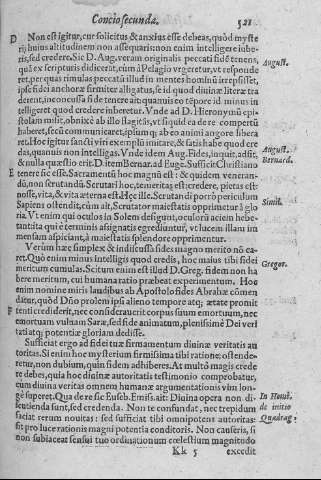 Concio secunda. 521
D Non est igitur, cur solicitus & anxius esse debeas, quòd myste
rij huius altitudinem non assequaris: non enim intelligere iube-
ris, sed credere. Sic D. Aug. veram originalis peccati fidē tenens,
August.
quā ex scripturis didicerit, cùm à Pelagio vrgeretur, vt responde
ret, per quas rimulas peccatū illud in mentes hominū irrepsisset,
ipse fidei anchoræ firmiter alligatus, se id quod diuinæ literæ tra
derent, inconcussa fide tenere ait: quamuis eo tēpore id minus in
telligeret quod credere iuberetur. Vnde ad D. Hieronymū epi-
stolam misit, obnixè ab illo flagitās, vt siquid ea de re compertū
haberet, secū communicaret, ipsumq; ab eo animi angore libera
ret. Hoc igitur sancti viri exemplū imitare, & satis habe quod cre
das, quamuis non intelligas. Vnde idem Aug. Fides, inquit, adsit,
August.
& nulla quæstio erit. D. item Bernar. ad Euge. Sufficit Christiano
Bernard.
E tenere sic esse. Sacramentū hoc magnū est: & quidem veneran-
dū, non scrutandū. Scrutari hoc, temeritas est: credere, pietas est:
nosse, vita, & vita æterna est. Hęc ille. Scrutari porrò periculum
Sapiens ostendit, cùm ait, Scrutator maiestatis opprimetur à glo
Simil.
ria. Vt enim qui oculos in Solem desigunt, oculorū aciem hebe-
tantita qui è terminis assignatis egrediuntur, vt lucem illam im
mensam aspiciant, à maiestatis splendore opprimentur.
Verùm hæc simplex & indiscussa fides magno merito nō ca-
ret. Quò enim minus intelligis quod credis, hoc maius tibi fidei
Gregor.
meritum cumulas. Scitum enim est illud D. Greg. fidem non ha
bere meritum, cui humana ratio præbeat experimentum. Hoc
enim nomine miris laudibus ab Apostolo fides Abrahæ cōmen
datur, quòd Dño prolem ipsi alieno tempore atq; ætate promit
F tenti crediderit, nec considerauerit corpus suum emortuum, nec
emortuam vuluam Saræ, sed fide animatum, plenissimè Dei veri
tati atq; potentiæ gloriam dedisse.
Sufficiat ergo ad fidei tuæ firmamentum diuinæ veritatis au
toritas. Si enim hoc mysterium firmissima tibi ratione ostende-
retur, non dubium, quin fidem adhiberes. At multò magis crede
re debes, quia hoc diuinæ autoritatis testimonio comprobatur,
cùm diuina veritas omnem humanæ argumentationis vim lon-
gè superet. Qua de re sic Euseb. Emis. ait: Diuina opera non di-
In Homil.
scutienda sunt, sed credenda. Non te confundat, nec trepidum
de initio
faciat rerum nouitas: sed sufficiat tibi omnipotens autoritas:
Quadrag.
sit pro lucerationis magni potentia conditoris. Non causeris, si
non subiaceat sensui tuo ordinationum cœlestium magnitudo
Kk 5 excedit